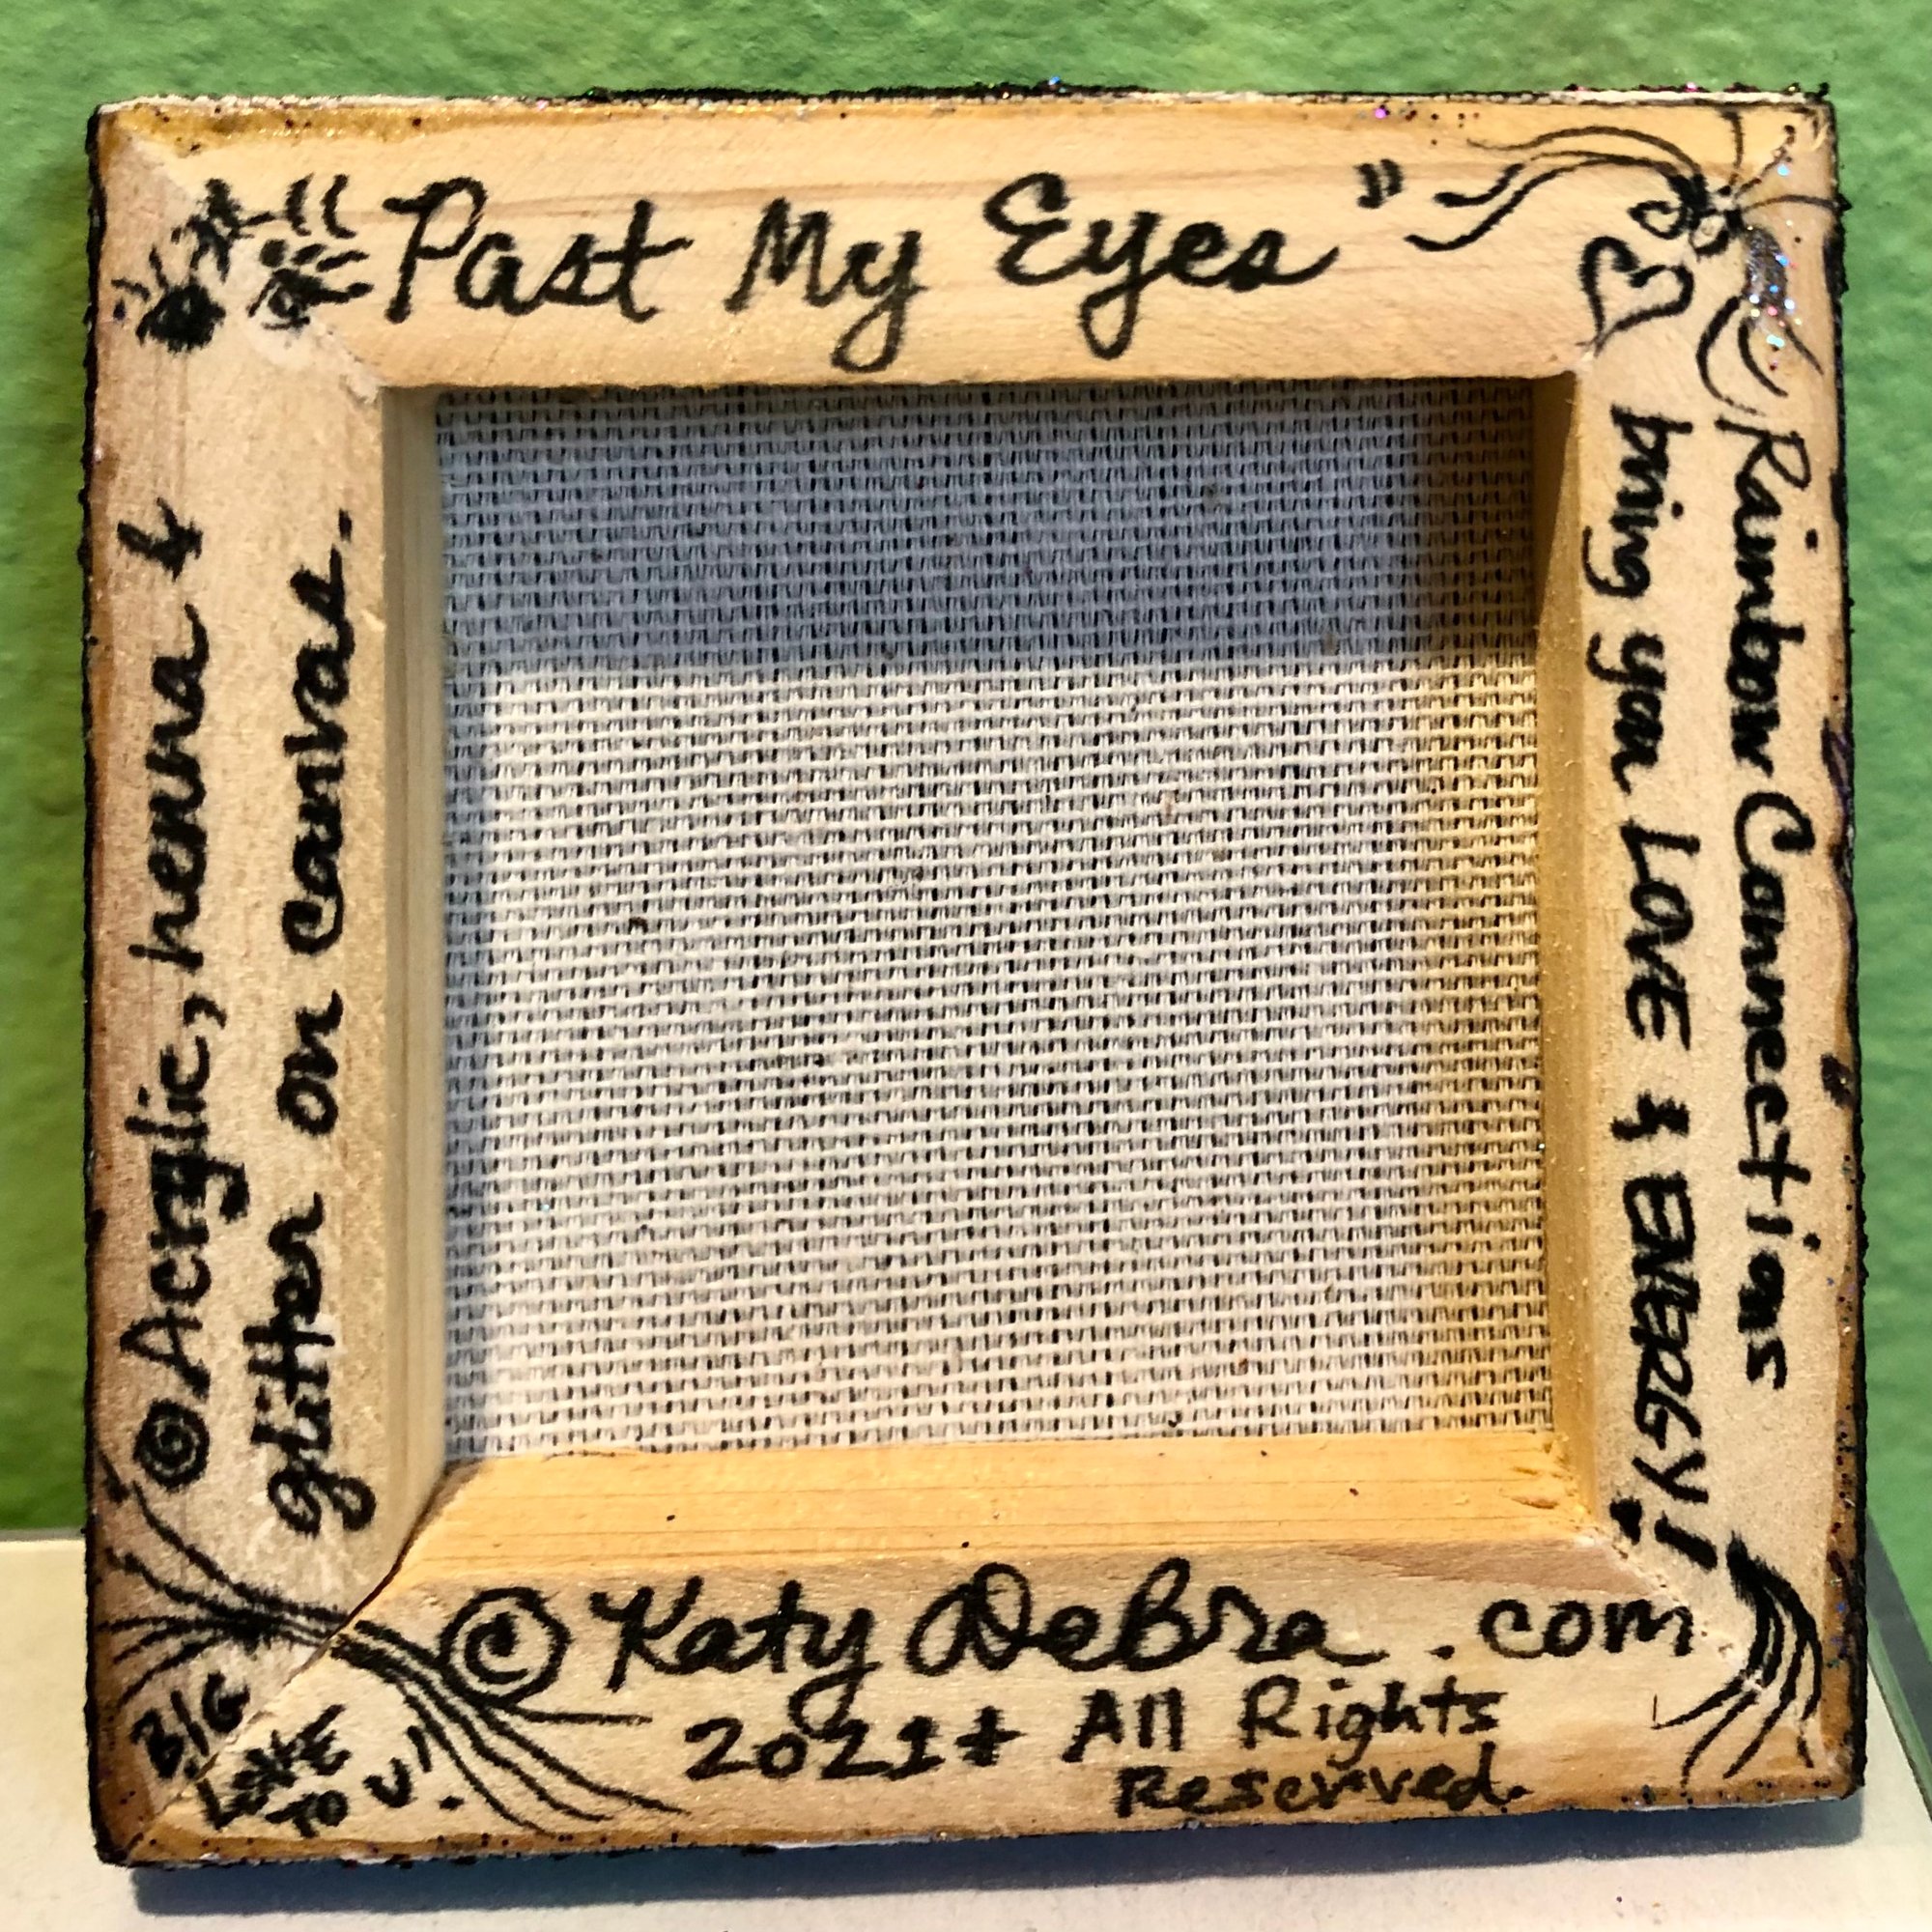 Past My Eyes"
Rainbow Connections
bring you LOVE & ENERGY!
© Katy DeBra.com
2021+ All Rights
Reserved.
BIG
LOVE
TO U!
© Acrylic, henna &
glitter on canvas.